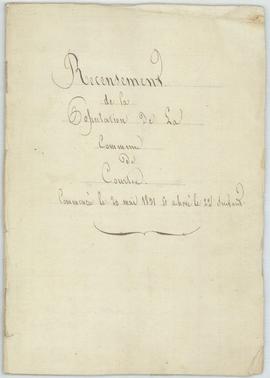 Recensement
de la
Population De La
Commune
De
Courtée.
Commencé le 20 mai 1831 & achevé le 22 suivant